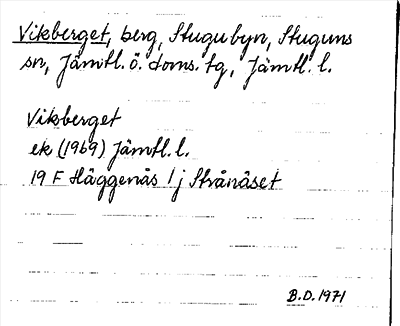 Vikberget, berg, Stugubyn, Stuguns
sn, Jämtl. ö. doms. tg, Jämtl. l.
Vikberget
ek (1969) Jämtl. l.
19 F Häggenås 1 j Strånåset
B.D. 1971